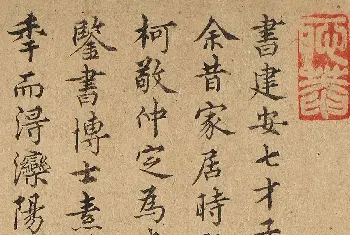 書建安七才子
余昔家居時
柯敬仲定為
鑒書博士素
季而淂灤陽